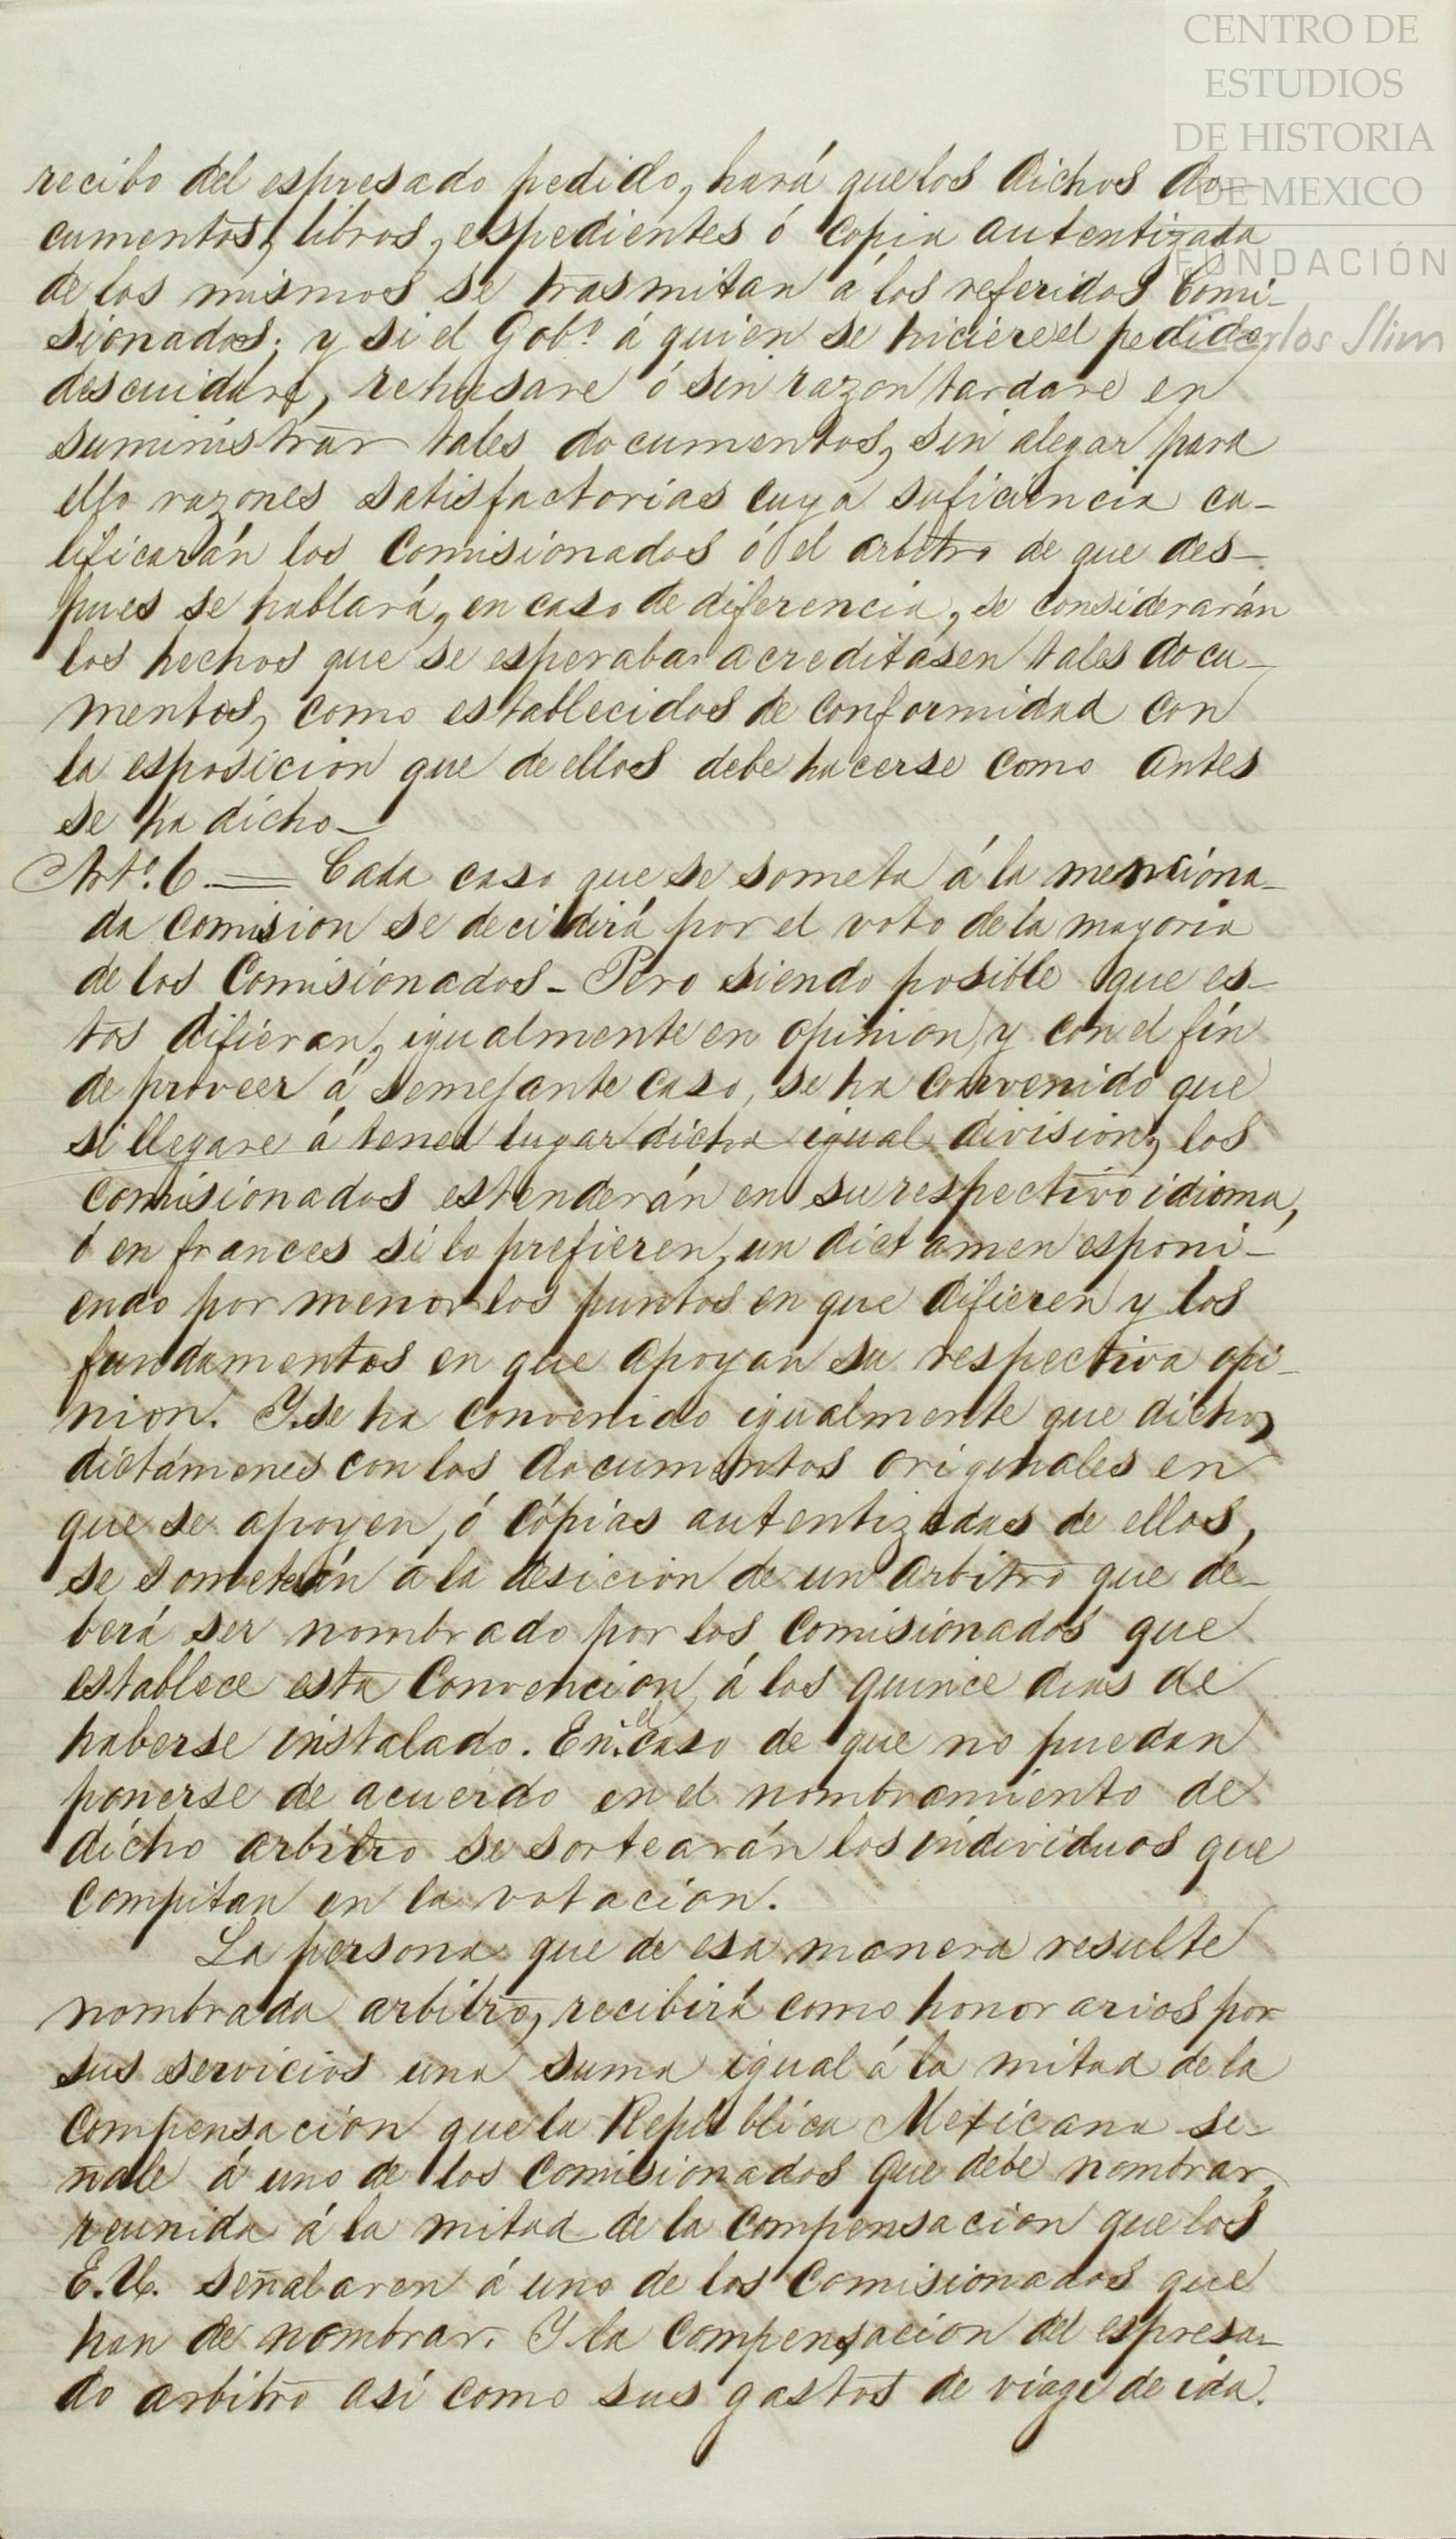 CENTRO DE
ESTUDIOS
DE HISTORIA
DE MEXICO
FUNDACIÓN
Carlos Slim
recibo del espresado pedido, hará que los dichos do-
cumentos, libros, espedientes ó copia autentizada
de los mismos se trasmitan á los referidos Comi-
sionados; y si el Gobº á quien se hiciere el pedido
descuidare, rehusare ó sin razon tardare en
suministrar tales documentos, sin alegar para
ello razones satisfactorias cuya suficiencia ca-
lificarán los Comisionados ó el arbitro de que des-
pues se hablará, en caso de diferencia, se considerarán
los hechos que se esperaba acreditasen tales docu-
mentos, como establecidos de conformidad con
la esposicion que de ellos debe hacerse como antes
se ha dicho-
Artº. 6.= Cada caso que se someta á la menciona-
da comision se decidirá por el voto de la mayoria
de los Comisionados- Pero siendo posible que es-
tos difieran, igualmente en opinion, y con el fin
de proveer á semejante caso, se ha convenido que
si llegare á tener lugar dicha igual division, los
comisionados estenderán en su respectivo idioma,
ó en frances si lo prefieren, un dictamen esponi-
endo por menor los puntos en que difieren y los
fundamentos en que apoyan su respectiva opi-
nion. Y se ha convenido igualmente que dichos
dictámenes con los documentos originales en
que se apoyen, ó cópias autentizadas de ellos,
se someterán á la desicion de un arbitro que de-
berá ser nombrado por los Comisionados que
establece esta Convencion, á los quince dias de
haberse instalado. En el caso de que no puedan
ponerse de acuerdo en el nombramiento de
dicho arbitro se sortearán los individuos que
compitan en la votacion.
La persona que de esa manera resulte
nombrada arbitro, recibirá como honorarios por
sus servicios una suma igual á la mitad de la
compensacion que la República Mexicana se-
ñale á uno de los Comisionados que debe nombrar,
reunida á la mitad de la compensacion que los
E.U. señalaren á uno de los Comisionados que
han de nombrar. Y la compensacion del espresa-
do arbitro asi como sus gastos de viage de ida.